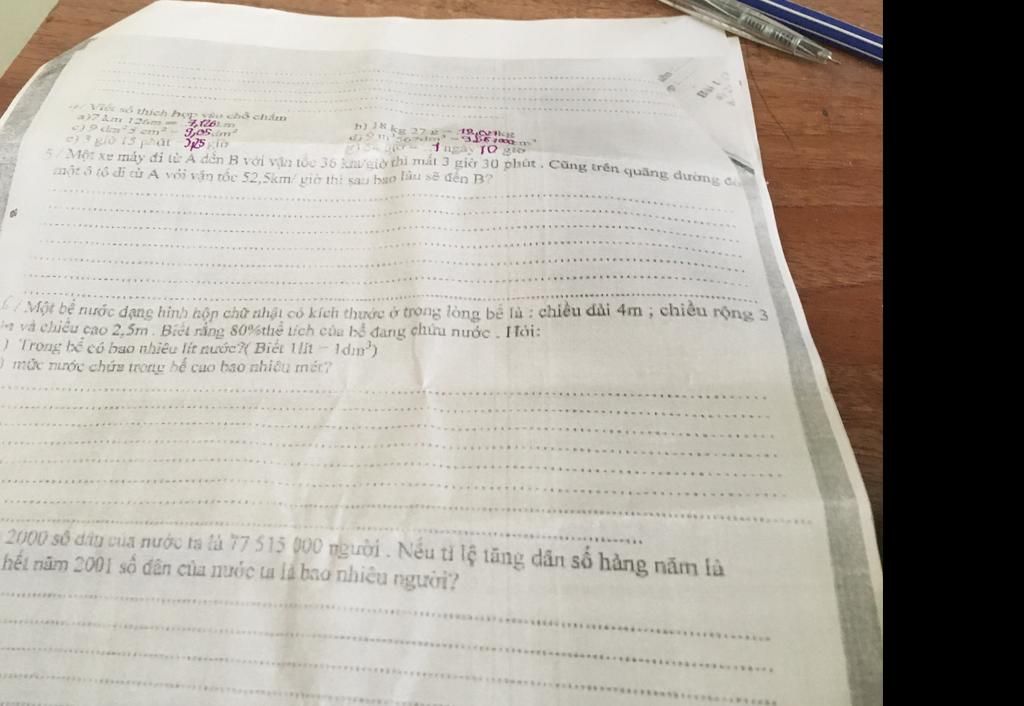 4/ Viết số thích hợp vào chỗ chấm
a) 7 km 126m = 7,126km
b) 18 kg 27 g = 18,027kg
c) 9 dm² 5 cm² = 9,05dm²
e) 3 giờ 15 phút 3,25 giờ
1 ngày 10 giờ
5 / Một xe máy đi từ A đến B với vận tốc 36 km/giờ thì mất 3 giờ 30 phút . Cũng trên quãng đường đó
một ô tô đi từ A với vận tốc 52,5km/ giờ thì sau bao lâu sẽ đến B?
6 / Một bể nước dạng hình hộp chữ nhật có kích thước ở trong lòng bể là : chiều dài 4m ; chiều rộng 3
m và chiều cao 2,5m . Biết rằng 80%thể tích của bể đang chứa nước . Hỏi:
) Trong bể có bao nhiêu lít nước?( Biết 1lít = 1dm³)
) mức nước chứa trong bể cao bao nhiêu mét?
2000 số dân của nước ta là 77 515 000 người . Nếu tỉ lệ tăng dân số hàng năm là
hết năm 2001 số dân của nước ta là bao nhiêu người?